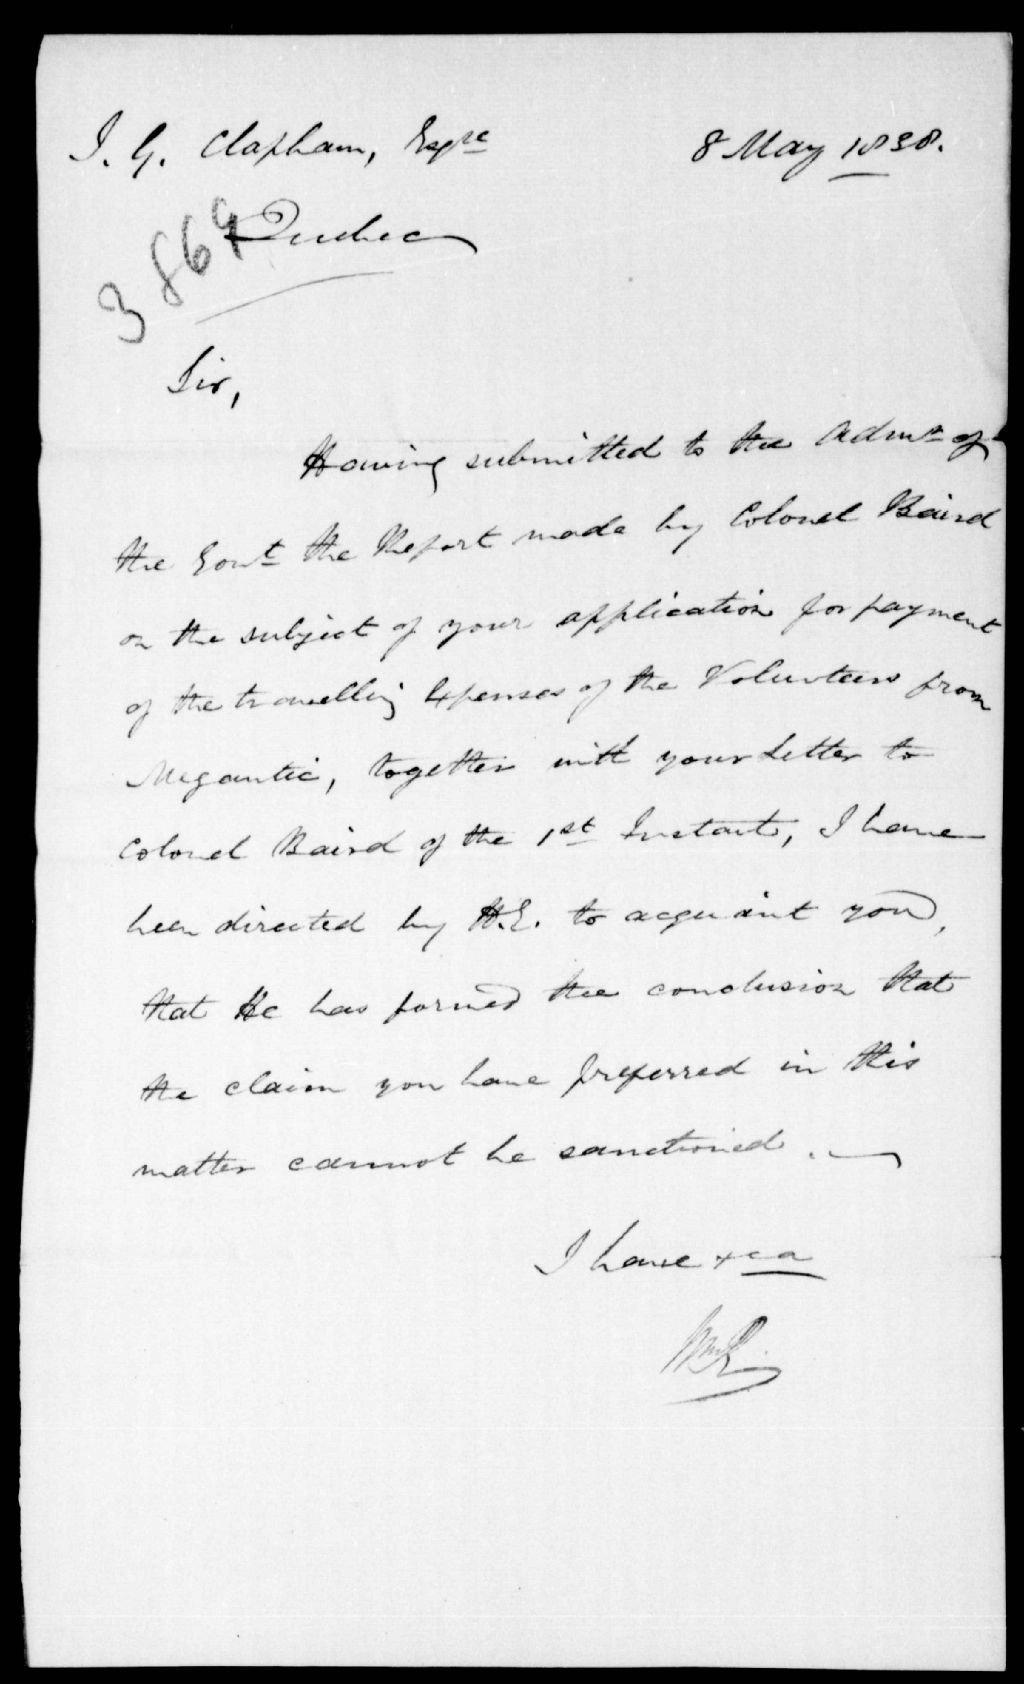 J. G. Clapham, Esqre
8 May 1838.
Quebec
3869
Sir,
Having submitted to the Admr of
the Govt the Report made by Colonel Baird
on the subject of your application for payment
of the travelling Expenses of the Volunteers from
Megantic, together with your Letter to
Colonel Baird of the 1st Instant, I have
been directed by H.E. to acquaint you,
that He has formed the conclusion that
the claim you have preferred in this
matter cannot be sanctioned.
I have &ca